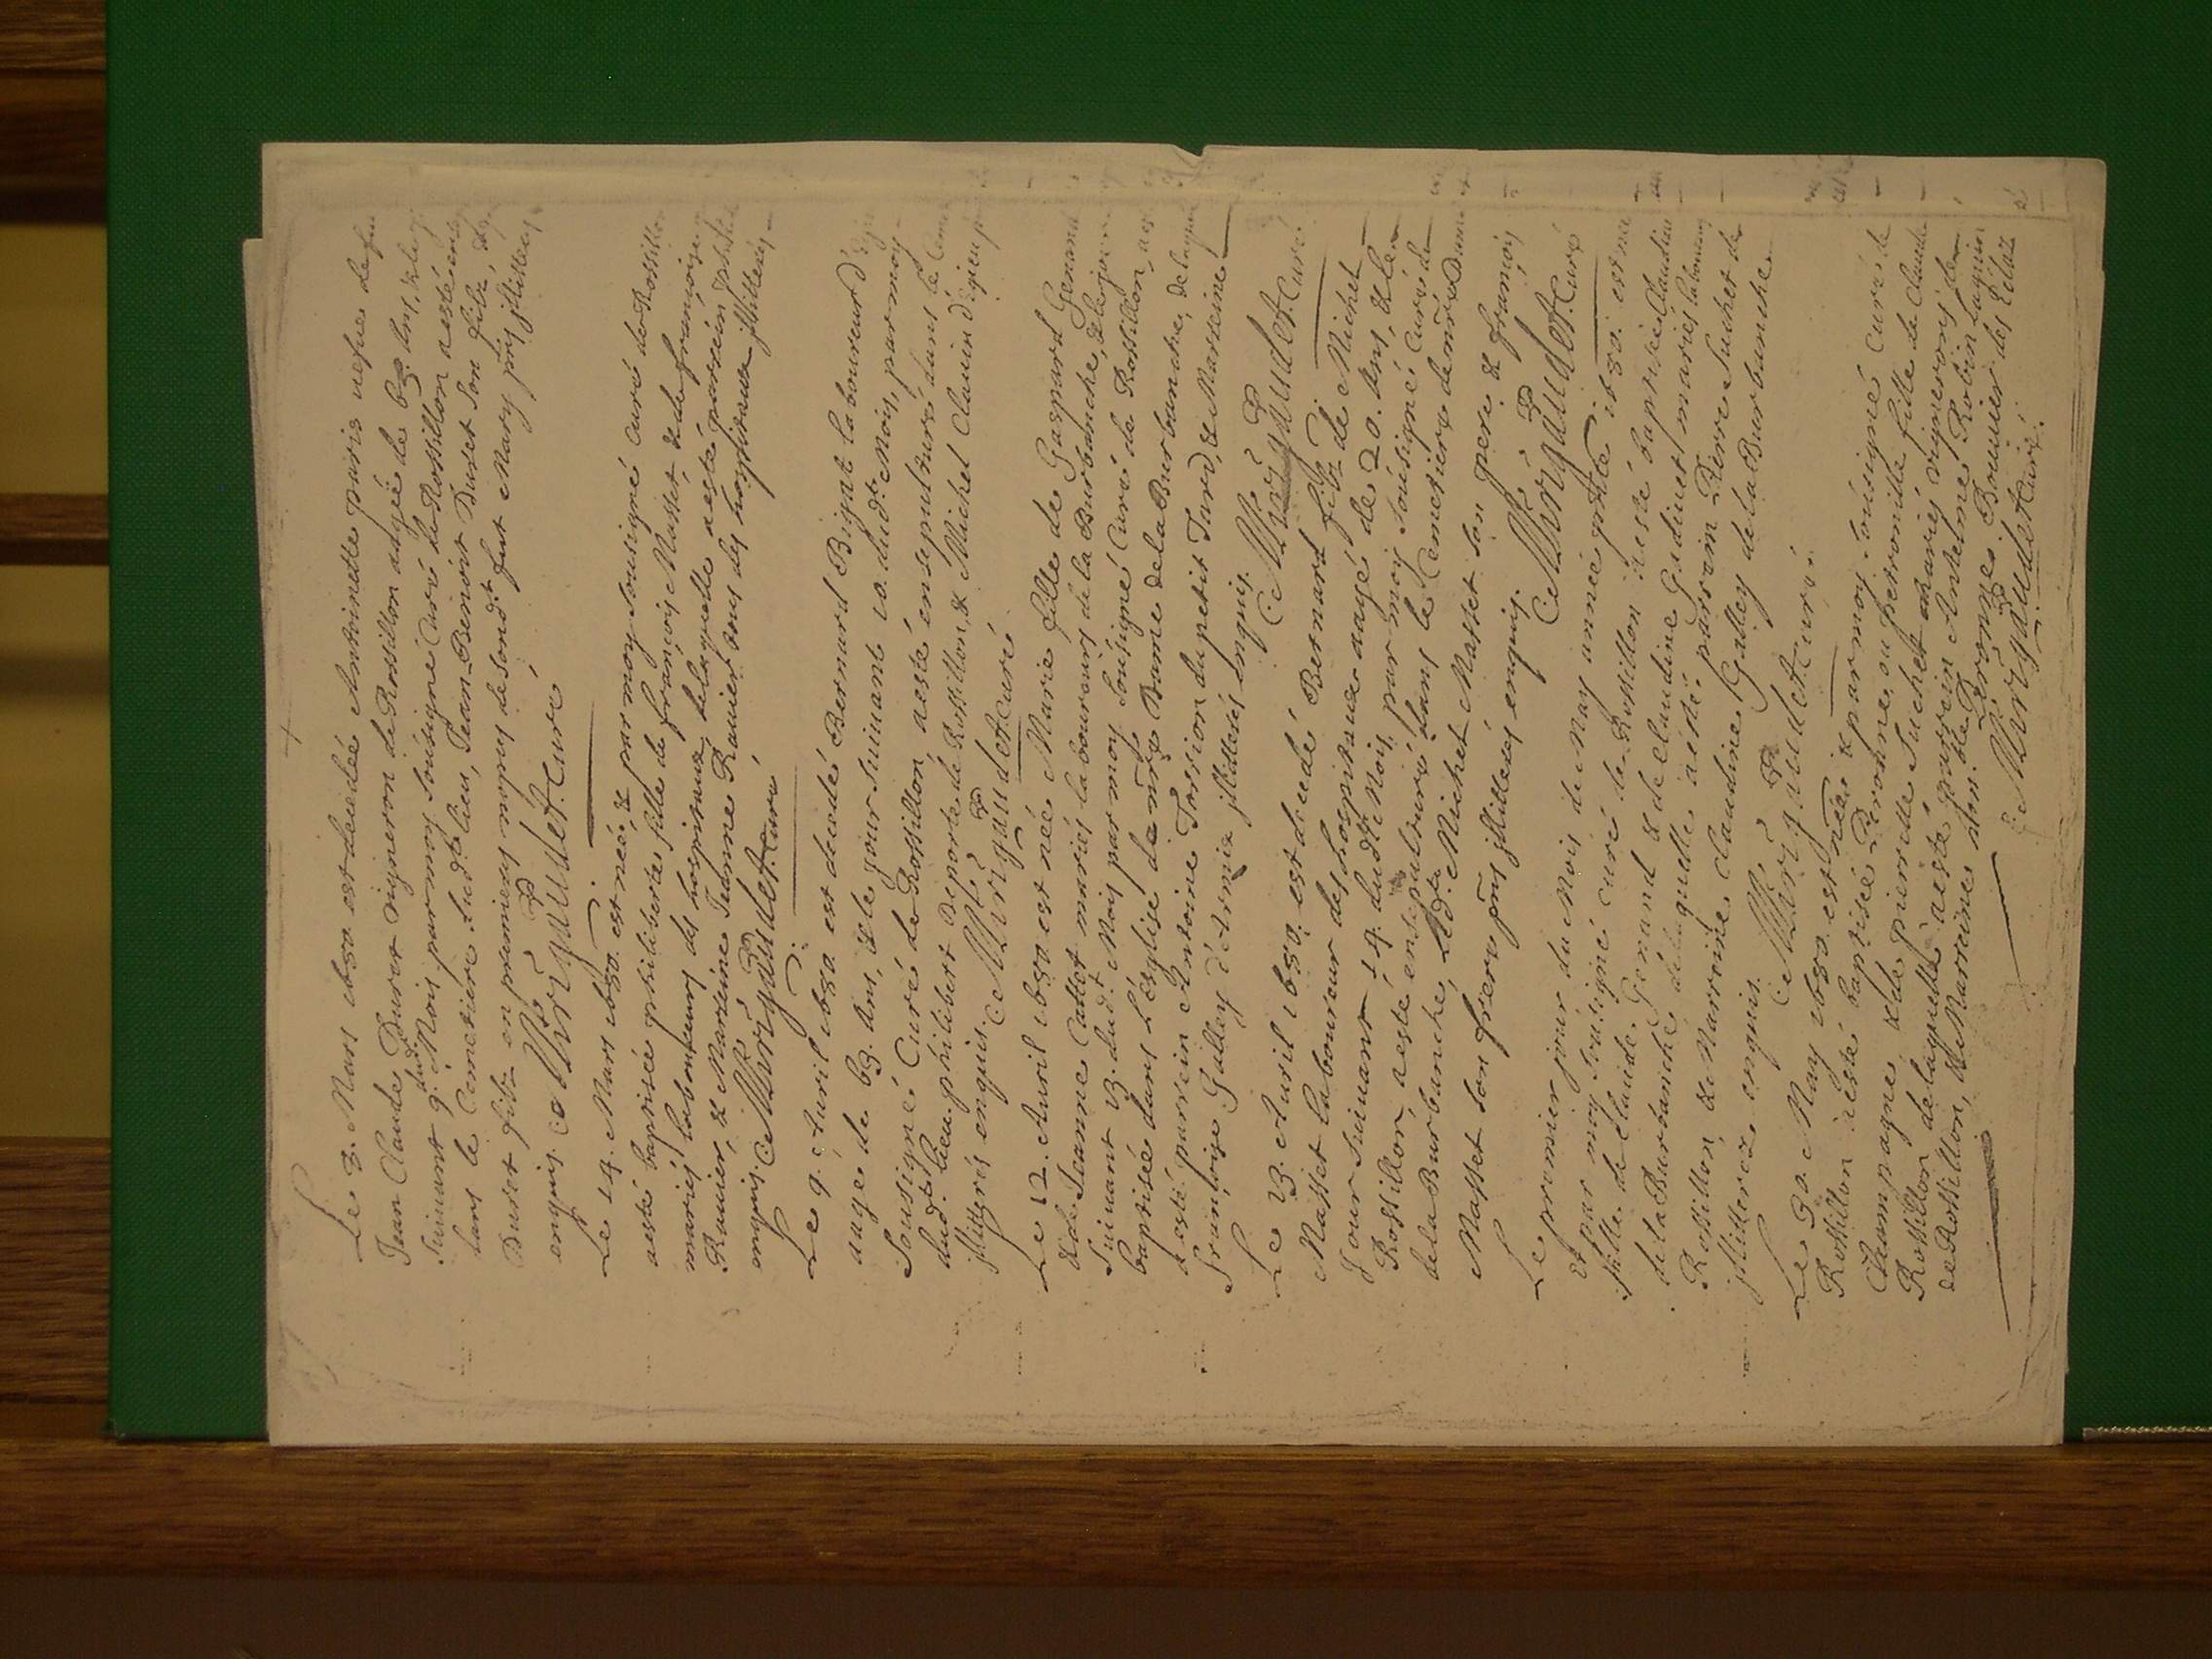 Le 8. Mars 1680 est decedée Antoinette paris vefue de feu
Jean Claude Duret vigneron de Rossillon aagée de 63. ans, & le
suivant 9. dud. Mois par moy soussigné Curé de Rossillon a esté
dans le Cemetiere dud. lieu, Jean Benoit Duret son filz,
Duret filz en premieres nopces de son d.t feut Mary pñs jllitterés
enquis. C. M. Brigaudet. Curé
Le 14. Mars 1680. est née, & par moy sousigné Curé de Rossillon
a esté baptisée philiberte fille de françois Masset & de françoise
mariés laboureurs des hospitaux, de laquelle a esté parrein
Ravier, & Marreine Jeanne Ravier tous des hospitaux jllitterés
enquis. C. M. Brigaudet. Curé
Le 9. Avril 1680 est decedé Bernard Bigat laboureur
aagé de 63. ans, & le jour suivant 10. dud.t Mois, par moy
Sousigné Curé de Rossillon, a esté ensepulturé dans le
dud.t lieu philibert Deporte de Rossillon, & Michel Clavin
jllitterés enquis. C. M. Brigaudet. Curé
Le 12. Avril 1680 est née Marie fille de Gaspard Genand
& de Jeanne Callet mariés laboureurs de la Burbanche, & le jour
suivant 13. dud.t Mois par moy sousigné Curé de Rossillon, a esté
baptisée dans l'eglise de nr̃e Dame de la Burbanche, de laquelle
a esté parrein Antoine Torsion du petit Tard, & Marreine
Françoise Galley d'Armix jllitterés enquis.
C. M. Brigaudet. Curé
Le 13. Avril 1680. est decedé Bernard filz de Michel
Masset laboureur des hospitaux aagé de 20. ans, & le
jour suivant 14. dud.t Mois, par moy sousigné Curé de
Rossillon, a esté ensepulturé dans le Cemetiere de nr̃e Dame
de la Burbanche, led.t Michel Masset son pere & françois
Masset son frere pñs jllitterés enquis.
C. M. Brigaudet. Curé
Le premier jour du Mois de May année pñte 1680. est née
et par moy sousigné curé de Rossillon a esté baptisée Claudine
fille de Claude Genand & de Claudine Godinet mariés laboureurs
de la Burbanche de laquelle a esté parrein Pierre Suchet de
Rossillon, & Marreine Claudine Galley de la Burbanche
jllitterez enquis. C. M. Brigaudet Curé.
Le 30. May 1680 est née & par moy sousigné curé de
Rossillon a esté baptisée Peronne, ou petronille fille de Claude
Champagne & de pierrette Suchet mariés vignerons de
Rossillon de laquelle a esté parrein Antelme Robin
de Rossillon, & Marreine dam.lle Peronne Bouvier
C. M. Brigaudet Curé.